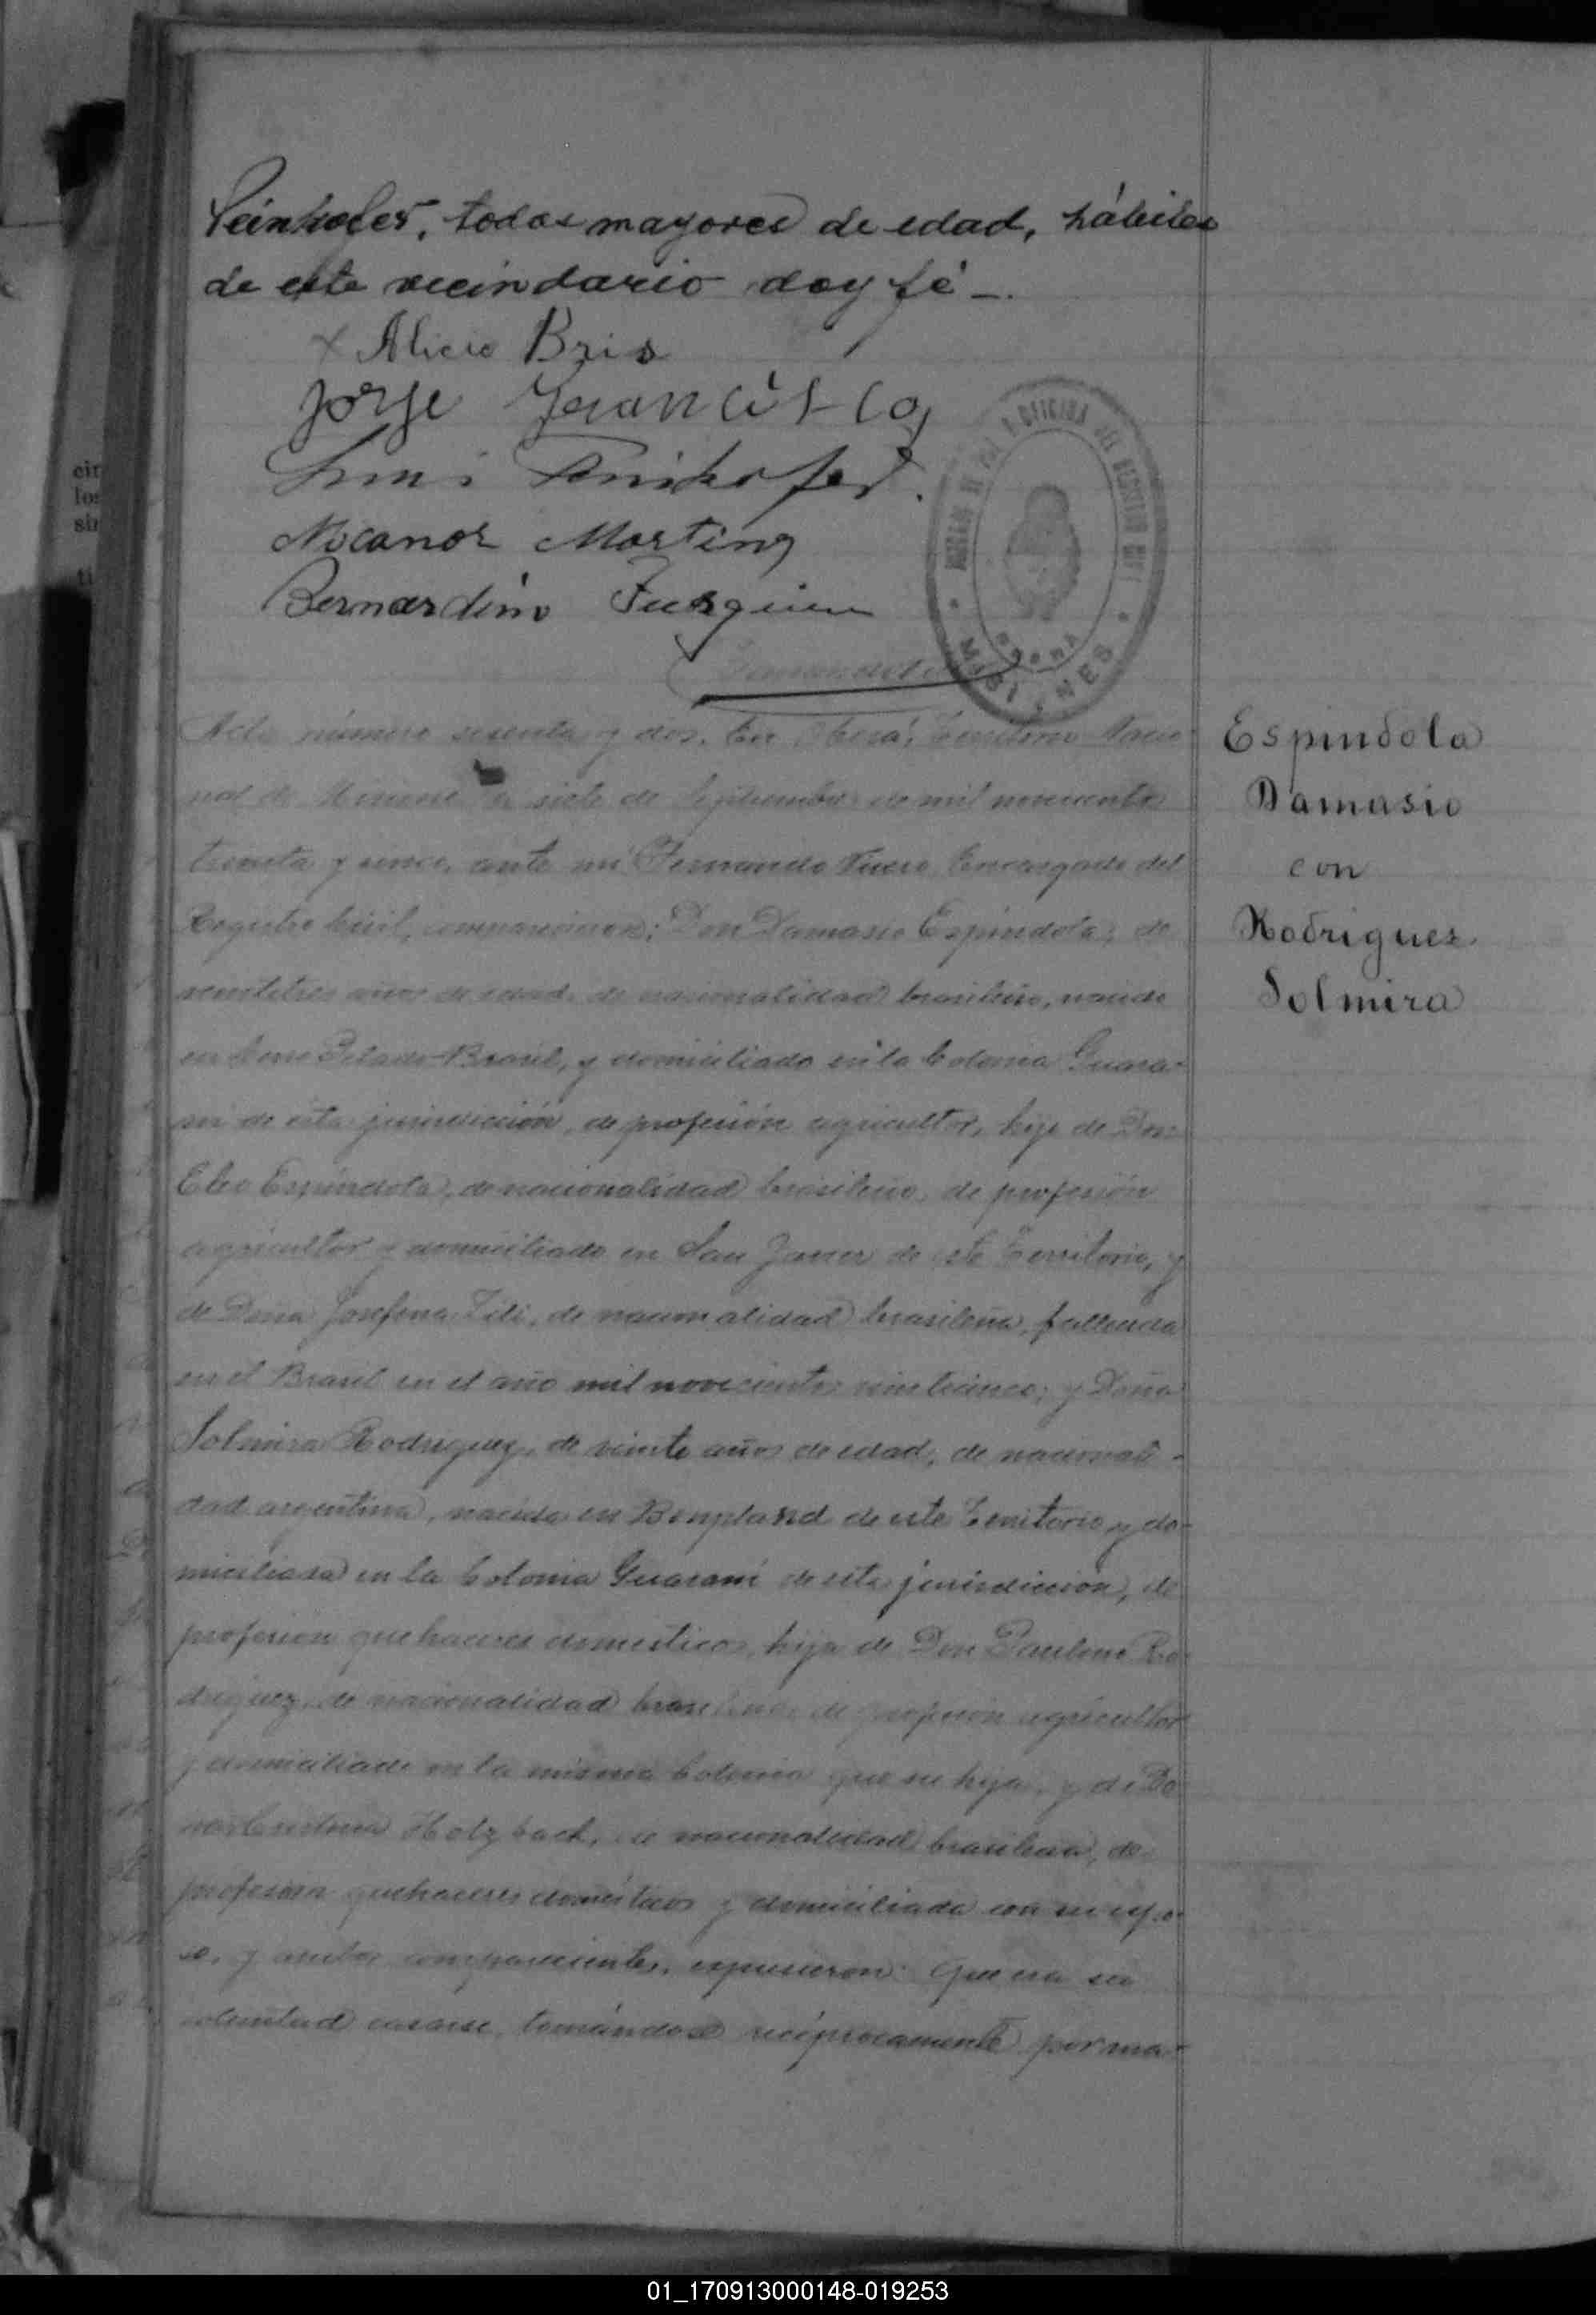 todos mayores de edad, hábiles
de este vecindario doy fé —.
x Alicio Bris
Jorge
Nicanor Martins
Bernardino
OFICINA DEL REGISTRO CIVIL
OBERÁ
MISIONES
Acta número sesenta y dos. En Oberá, Territorio Nacio-
nal de Misiones a siete de Septiembre de mil novecientos
treinta y ante mi Fernando Encargado del
Registro Civil, comparecieron: Don Damasio Espindola, de
veintitres años de edad, de nacionalidad brasileño, nacido
en Cerro Pelado-Brasil, y domiciliado en la Colonia Guara-
ni de esta jurisdicción, de profesión agricultor, hijo de Don
Espindola, de nacionalidad brasileño, de profesión
agricultor y domiciliado en San Javier de este Territorio, y
de Doña Josefina de nacionalidad brasileña, fallecida
en el Brasil en el año mil novecientos veinticinco; y Doña
Solmira Rodriguez, de veinte años de edad, de nacionali-
dad argentina, nacida en Bonpland de este Territorio y do-
miciliada en la Colonia Guarani de esta jurisdicción, de
profesion quehaceres domesticos, hija de Don Paulino Ro-
driguez, de nacionalidad brasileño, de profesión agricultor
y domiciliado en la misma Colonia que su hija, y de Do-
ña Holzbach, de nacionalidad brasilera, de
profesion quehaceres domésticos y domiciliada con su espo-
so, y ambos comparecientes, expusieron: Que era su
voluntad casarse, tomándose recíprocamente por ma-
Espindola
Damasio
con
Rodriguez
Solmira
cin
los
sin
01_170913000148-019253